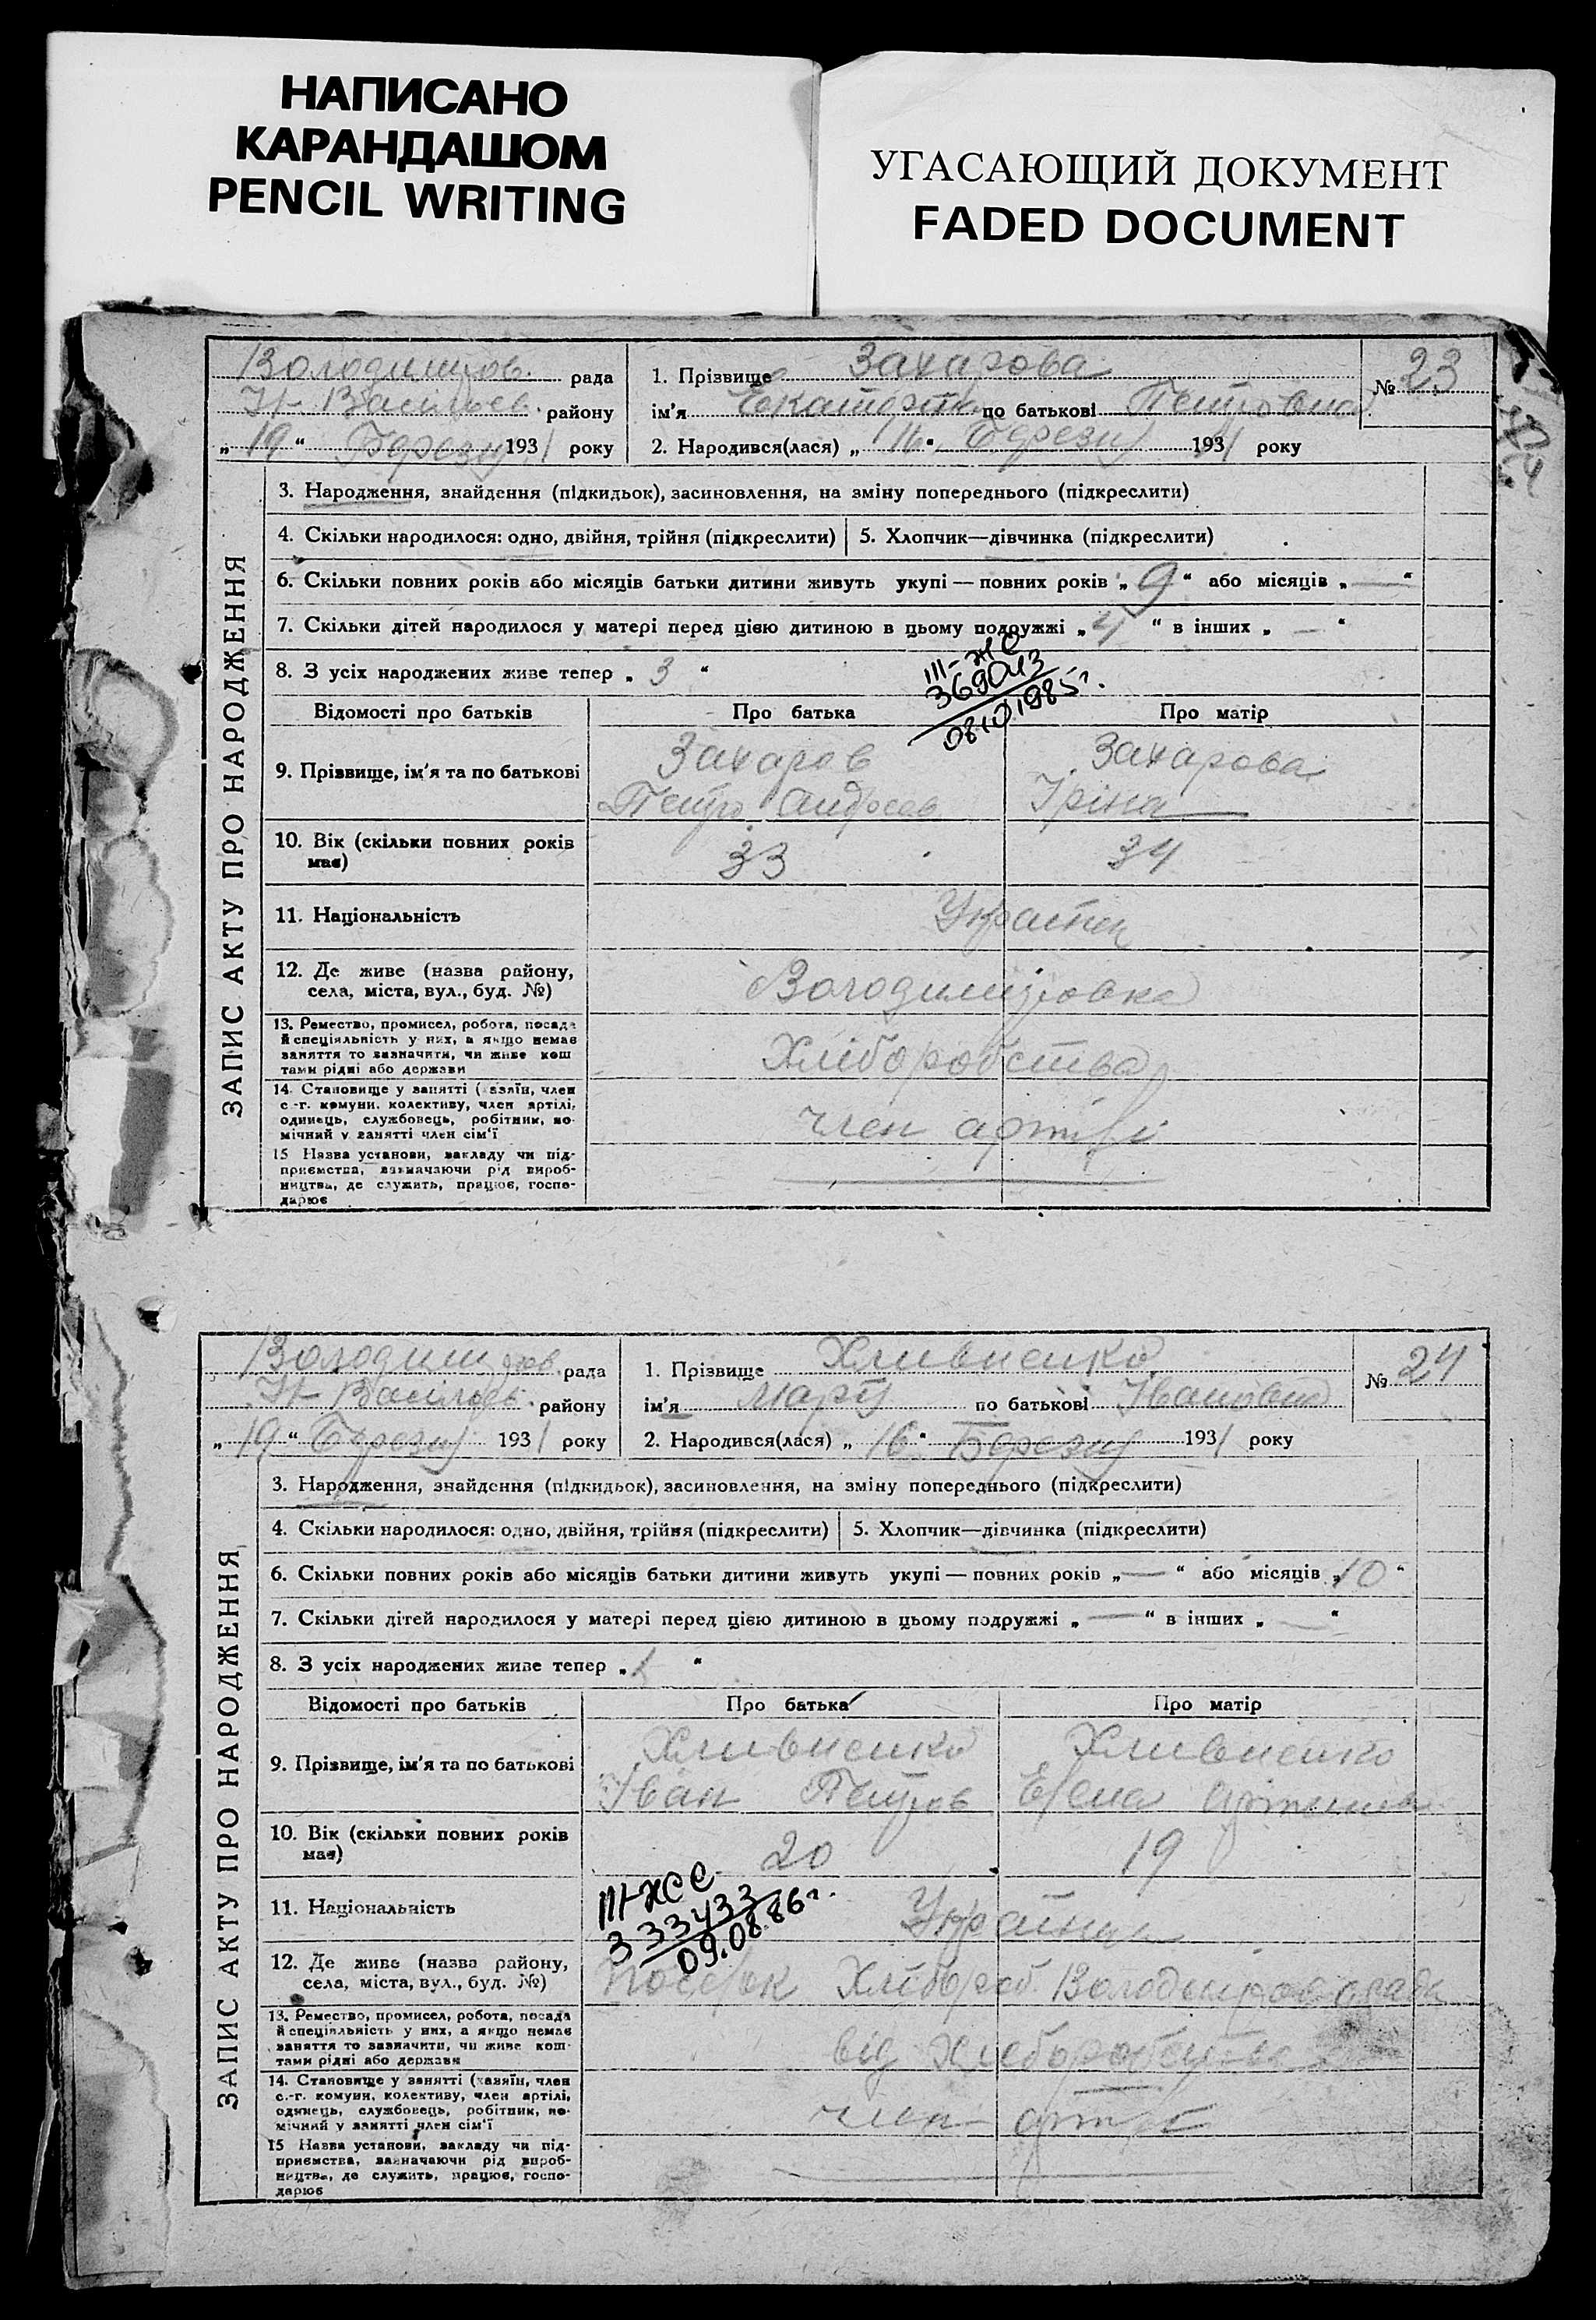 НАПИСАНО
КАРАНДАШОМ
PENCIL WRITING
УГАСАЮЩИЙ ДОКУМЕНТ
FADED DOCUMENT
ЗАПИС АКТУ ПРО НАРОДЖЕННЯ
Володимиров. рада
Н-Васильев. району
„19“ Березня 1931 року
1. Прізвище Захарова
ім'я Екатерина по батькові Петровна
№ 23
2. Народився(лася) „16“ Березня 1931 року
3. Народження, знайдення (підкидьок), засиновлення, на зміну попереднього (підкреслити)
4. Скільки народилося: одно, двійня, трійня (підкреслити) 5. Хлопчик—дівчинка (підкреслити)
6. Скільки повних років або місяців батьки дитини живуть укупі — повних років „9“ або місяців „—“
7. Скільки дітей народилося у матері перед цією дитиною в цьому подружжі „4“ в інших „—“
8. З усіх народжених живе тепер „3“
III-ЖС
369043
08.01.1985г.
Відомості про батьків Про батька Про матір
9. Прізвище, ім'я та по батькові
Захаров Захарова
Петро Андреев Іріна
10. Вік (скільки повних років має) 33 34
11. Національність Українц
12. Де живе (назва району, села, міста, вул., буд. №) Володимировка
13. Ремество, промисел, робота, посада
й спеціяльність у них, а якщо немає
заняття то зазначити, чи живе кош
тами рідні або держави
Хліборобства
14. Становище у занятті (хазяїн, член
с.-г. комуни, колективу, член артілі,
одинець, службовець, робітник, по-
мічний у занятті член сім'ї
член артілі
15 Назва установи, закладу чи під-
приємства, зазначаючи рід вироб-
ництва, де служить, працює, госпо-
дарює
ЗАПИС АКТУ ПРО НАРОДЖЕННЯ
Володимиров. рада
Н-Васильев. району
„19“ Березня 1931 року
1. Прізвище Хливненко
ім'я Марія по батькові Івановна
№ 24
2. Народився(лася) „16“ Березня 1931 року
3. Народження, знайдення (підкидьок), засиновлення, на зміну попереднього (підкреслити)
4. Скільки народилося: одно, двійня, трійня (підкреслити) 5. Хлопчик—дівчинка (підкреслити)
6. Скільки повних років або місяців батьки дитини живуть укупі — повних років „—“ або місяців „10“
7. Скільки дітей народилося у матері перед цією дитиною в цьому подружжі „—“ в інших „—“
8. З усіх народжених живе тепер „1“
Відомості про батьків Про батька Про матір
9. Прізвище, ім'я та по батькові
Хливненко Хливненко
Іван Петров Елена
10. Вік (скільки повних років має) 20 19
III-ЖС
333433
09.08.86г.
11. Національність Українц
12. Де живе (назва району,
села, міста, вул., буд. №)
Посёлок Хлібороб. Володимиров. ради
13. Ремество, промисел, робота, посада
й спеціяльність у них, а якщо немає
заняття то зазначити, чи живе кош-
тами рідні або держави
від хлеборобства
14. Становище у занятті (хазяїн, член
с.-г. комуни, колективу, член артілі,
одинець, службовець, робітник, по-
мічний у занятті член сім'ї
член артілі
15 Назва установи, закладу чи під-
приємства, зазначаючи рід вироб-
ництва, де служить, працює, госпо-
дарює